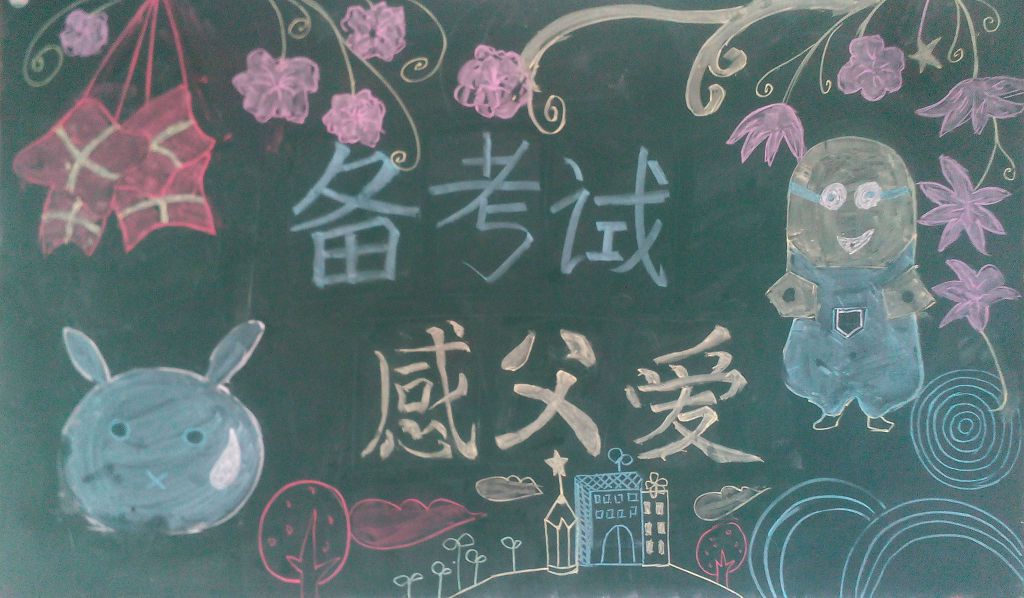 备考试
感父爱